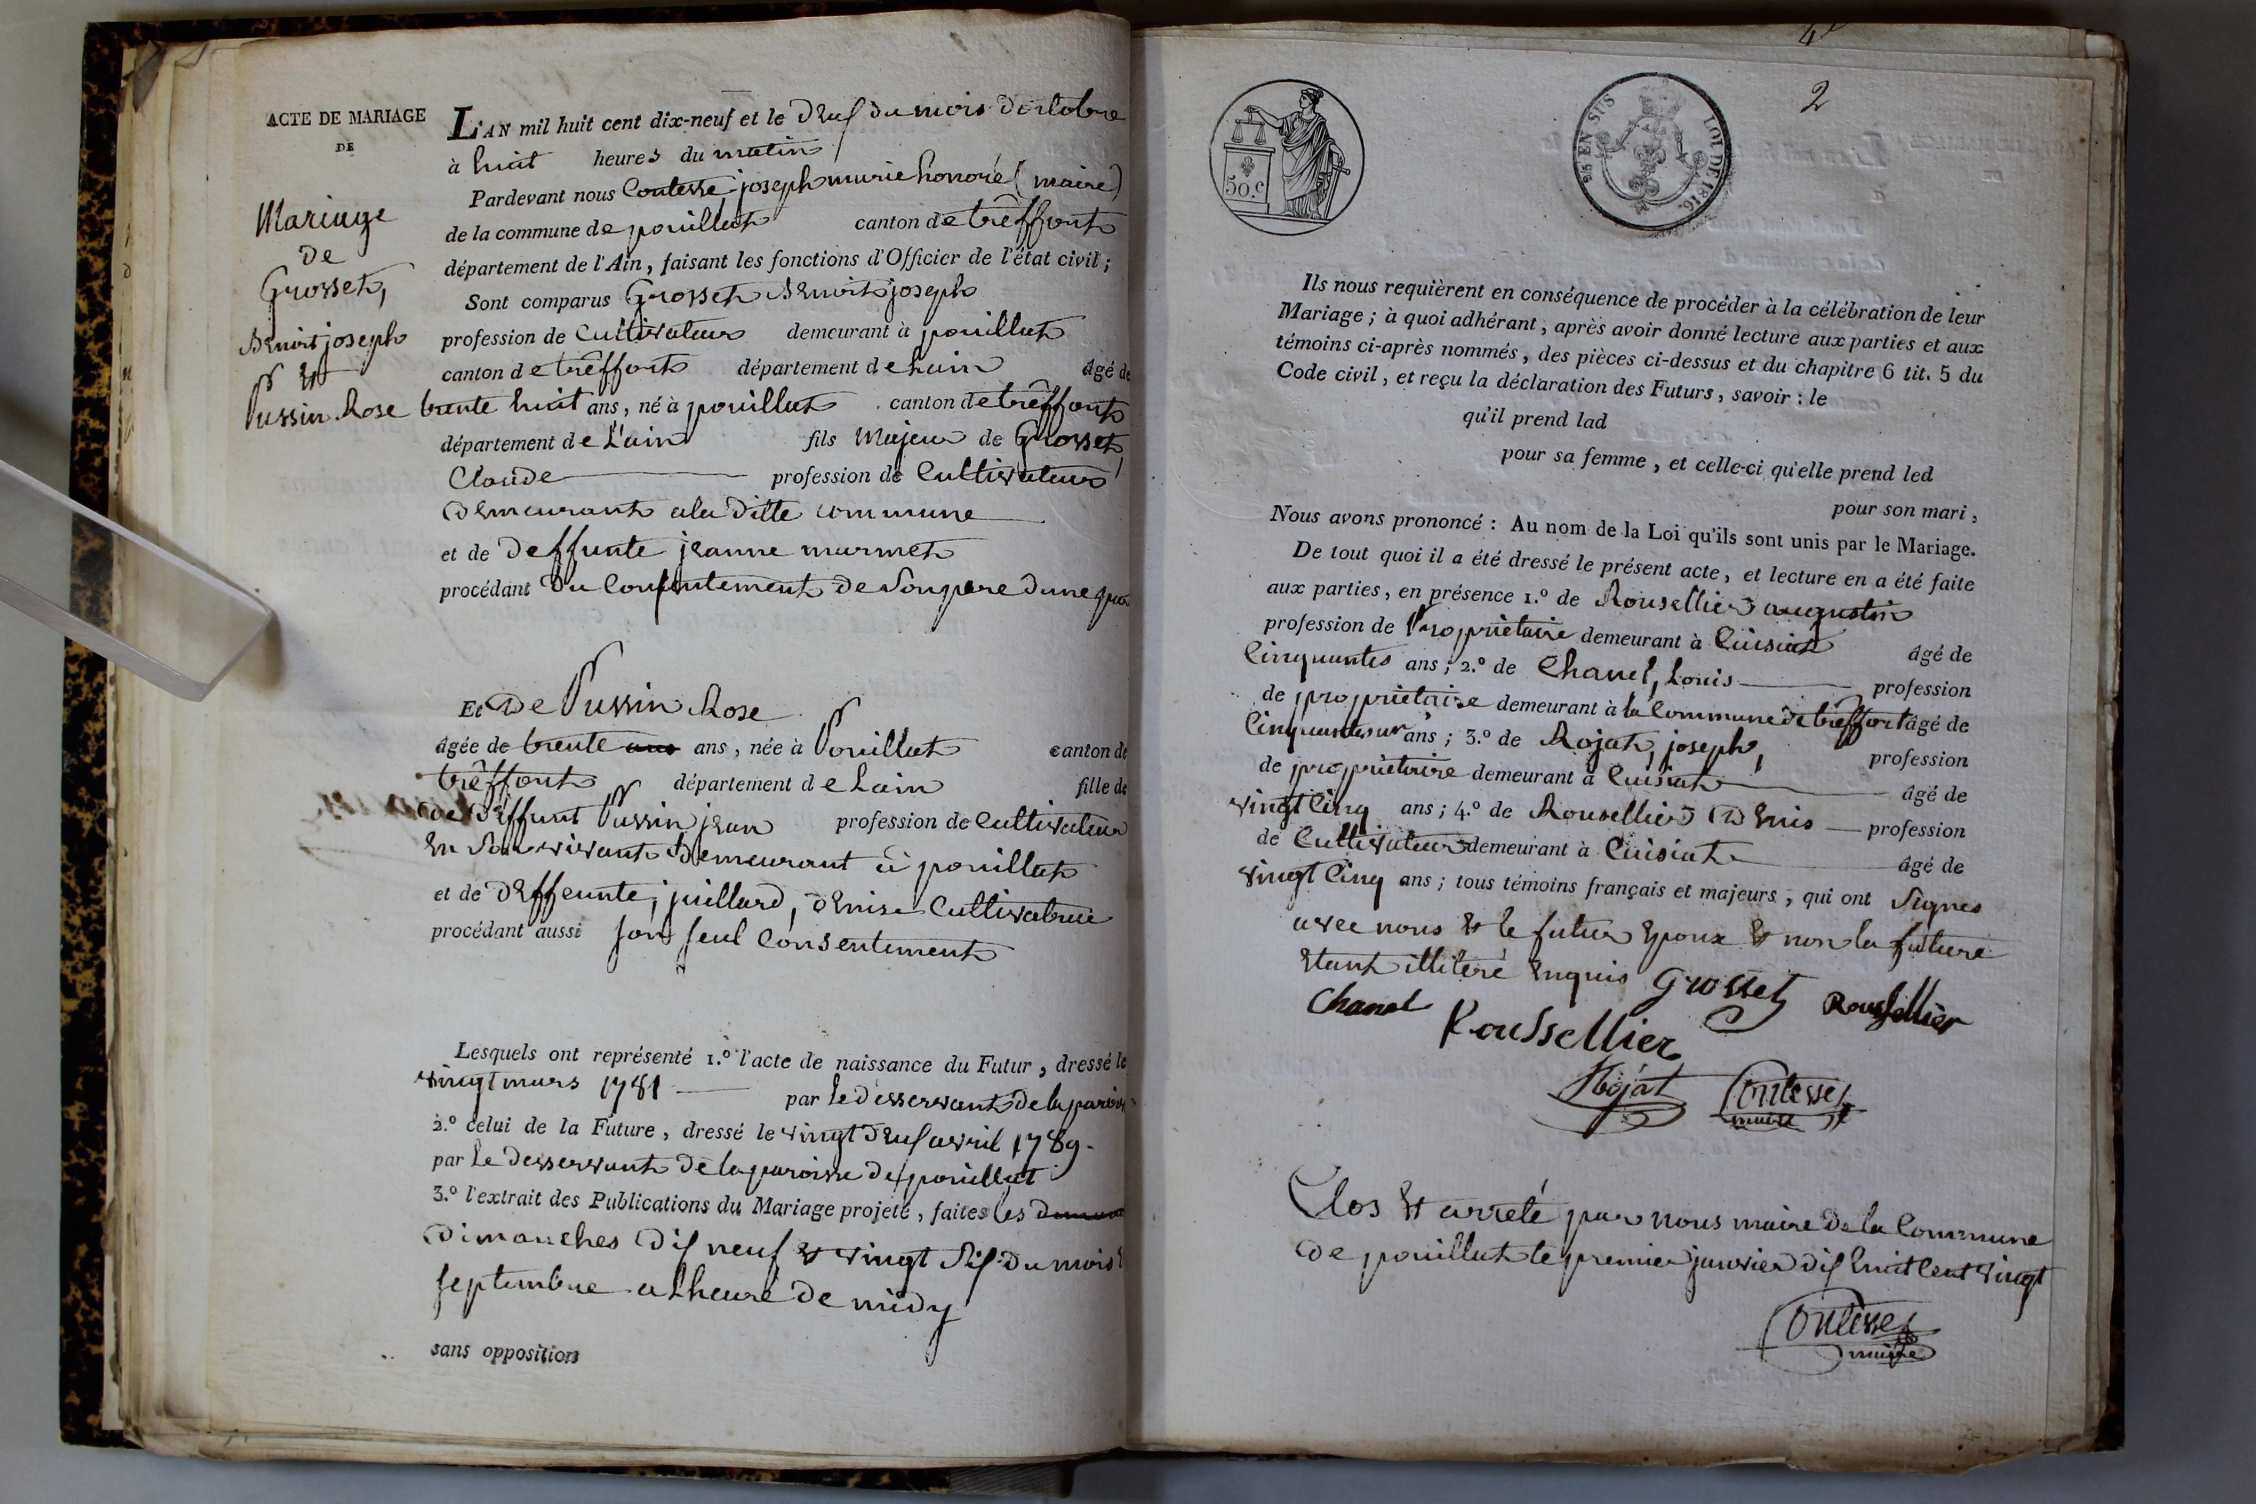 ACTE DE MARIAGE
DE
Mariage
de
Grosset,
Benoit joseph
et
Pussin Rose
L'AN mil huit cent dix-neuf et le deuf du mois doctobre
à huit heures du matin
Pardevant nous Contesse, joseph marie honoré (maire)
de la commune de pouillat canton de trêffort
département de l'Ain, faisant les fonctions d'Officier de l'état civil;
Sont comparus Grosset Benoit joseph
profession de Cultivateur demeurant à pouillat
canton de trêffort département de Lain âgé de
trente huit ans, né à pouillat canton de trêffort
département de L'ain fils Majeur de Grosset,
Claude profession de Cultivateur
demeurant a la ditte commune
et de deffunte jeanne murmet
procédant du Consentement de son pere dune par
Et De Pussin Rose
âgée de trente ans, née à Pouillat canton de
trêffort département de Lain fille de
de deffunt Pussin jean profession de Cultivateur
en Son vivant demeurant à pouillat
et de deffeunte, juillard, denise Cultivatrice
procédant aussi son seul consentement
Lesquels ont représenté 1.º l'acte de naissance du Futur, dressé le
vingt mars 1781 par le desservant de la parois
2.º celui de la Future, dressé le vingt deuf avril 1789.
par le desservant de la paroisse de pouillat
3.º l'extrait des Publications du Mariage projeté, faites les
dimanches dif neuf et vingt Sif du mois
septembre a Lheure de midy
sans opposition
2
50.c
EN SUS
LOI DE 1816.
Ils nous requièrent en conséquence de procéder à la célébration de leur
Mariage; à quoi adhérant, après avoir donné lecture aux parties et aux
témoins ci-après nommés, des pièces ci-dessus et du chapitre 6 tit. 5 du
Code civil, et reçu la déclaration des Futurs, savoir: le
qu'il prend lad
pour sa femme, et celle-ci qu'elle prend led
pour son mari,
Nous avons prononcé: Au nom de la Loi qu'ils sont unis par le Mariage.
De tout quoi il a été dressé le présent acte, et lecture en a été faite
aux parties, en présence 1.º de Rousellier augustin
profession de Propriétaire demeurant à Cuisiat âgé de
Cinquantes ans; 2.º de Chanel, Louis profession
de propriétaire demeurant à la Commune de trêffort âgé de
ans; 3.º de Rojat, joseph, profession
de propriétaire demeurant à Cuisiat âgé de
vingt Cinq ans; 4.º de Rousellier Denis profession
de Cultivateur demeurant à Cuisiat âgé de
vingt Cinq ans; tous témoins français et majeurs, qui ont Signes
avec nous et le futur Epoux et non la future
Etant illiteré Enquis Grosset
Chanel Roussellier Roussellier
Rojat Contesse
maire
Clos et arreté par nous maire de la Commune
de pouillat le premier janvier dif huit Cent vingt
Contesse
maire